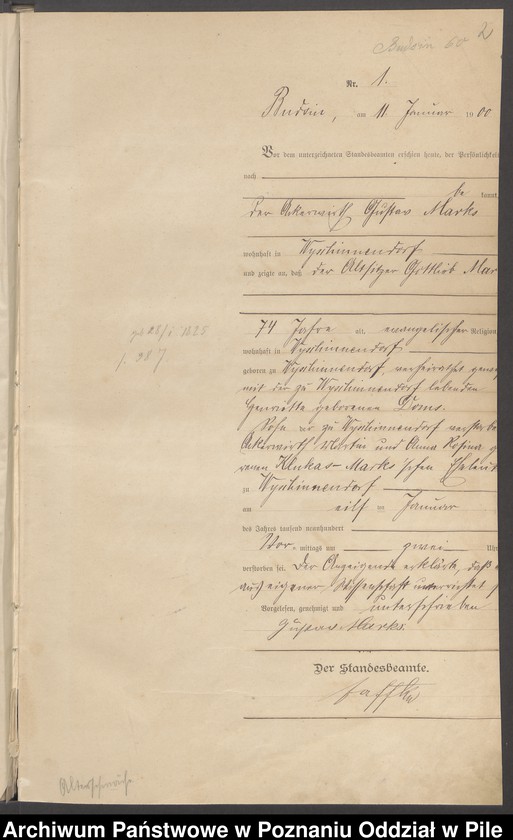 2
Budsin 60
Nr. 1.
Budsin, am 11 Januar 1900
Vor dem unterzeichneten Standesbeamten erschien heute, der Persönlichkeit
nach
be kannt,
der Ackerwirth Gustav Marks
wohnhaft in
und zeigte an, daß der Altsitzer Gottlieb Mar
74 Jahre alt, evangelischer Religion
wohnhaft in
geboren zu verheirathet gewes
mit der zu lebenden
Henriette geborenen Doms.
Sohn der zu verstorbe
Ackerwirth Martin und Anna Rosina g
renen Klukas-Marks'schen Eheleut
zu
am eilf ten Januar
des Jahres tausend neunhundert
Vor - mittags um zwei Uhr
verstorben sei. Der Anzeigende erklärte, daß e
aus eigener Wissenschaft unterrichtet s
Vorgelesen, genehmigt und unterschrieben
Gustav Marks.
Der Standesbeamte.
Altersschwäche
Archiwum Państwowe w Poznaniu Oddział w Pile